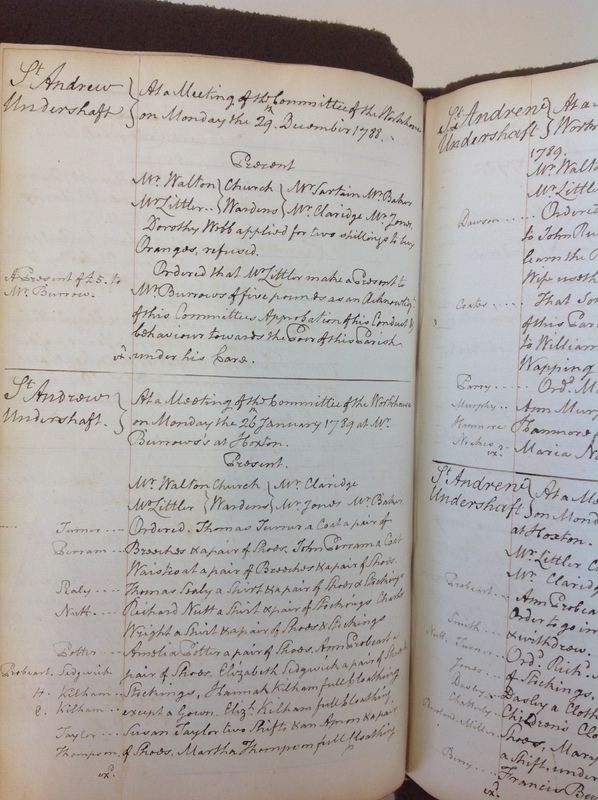 St Andrew
Undershaft
At a Meeting of the Committee of the Workhouse
on Monday the 29th December 1788.
Present
Mr. Walton Church Mr. Sartain Mr. Baker
Mr. Littler Wardens Mr. Claridge Mr. Jones
Dorothy Webb applied for two shillings to buy
Oranges, refused.
A Present of £5. to
Mr. Burrow.
Ordered that Mr. Littler make a Present to
Mr. Burrows of five pounds as an Acknowlg
of this Committees Approbation of his Conduct &
behaviour towards the Poor of this Parish
ex. under his Care.
St Andrew
Undershaft.
At a Meeting of the Committee of the Workhouse
on Monday the 26th January 1789 at Mr.
Burrows's at Hoxton.
Present.
Mr. Walton Church Mr. Claridge
Mr. Littler Wardens Mr. Jones Mr. Baker
Turner Ordered. Thomas Turner a Coat a pair of
Perram Breeches & a pair of Shoes. John Perram a Coat
Waistcoat a pair of Breeches & a pair of Shoes.
Thomas Sealy a Shirt & a pair of Shoes & Stockings
Nutt Richard Nutt a Shirt & pair of Stockings Charles
Wright a Shirt & a pair of Shoes & Stockings
Potter Amelia Potter a pair of Shoes. Ann Probeart a
Probeart. Sedgwick pair of Shoes. Elizabeth Sedgwick a pair of Shoes &
H. Kilham Stockings, Hannah Kilham full Cloathing
E. Kilham except a Gown. Elizth Kilham full Cloathing.
Taylor Susan Taylor two Shifts & an Apron & a pair
Thompson of Shoes. Martha Thompson full Cloathing
ex.
St Andrew
Undershaft
At a
Work
1789.
Mr. Walto
Mr. Littl
Ordered
to John Ru
learn the
Wife
Coales That
of this Par
to William
Wapping
Perry Ord. M
Murphy Ann Mur
Hanmore Hanmore
Noakes Maria No
ex.
St Andrew
Undershaft
At a Me
on Mond
at Hoxton.
Mr. Littler C
Mr. Clarid
Probeart Ann Probea
Order to go in
Smith & withdrew.
Nutt. Turner Ord. Rich.
Jones of Stockings.
Dasley Dasley a Cloth
Chatterly Children's Clo
Shoes, Mary
a Shift. under
Berry Francis Be
ex.